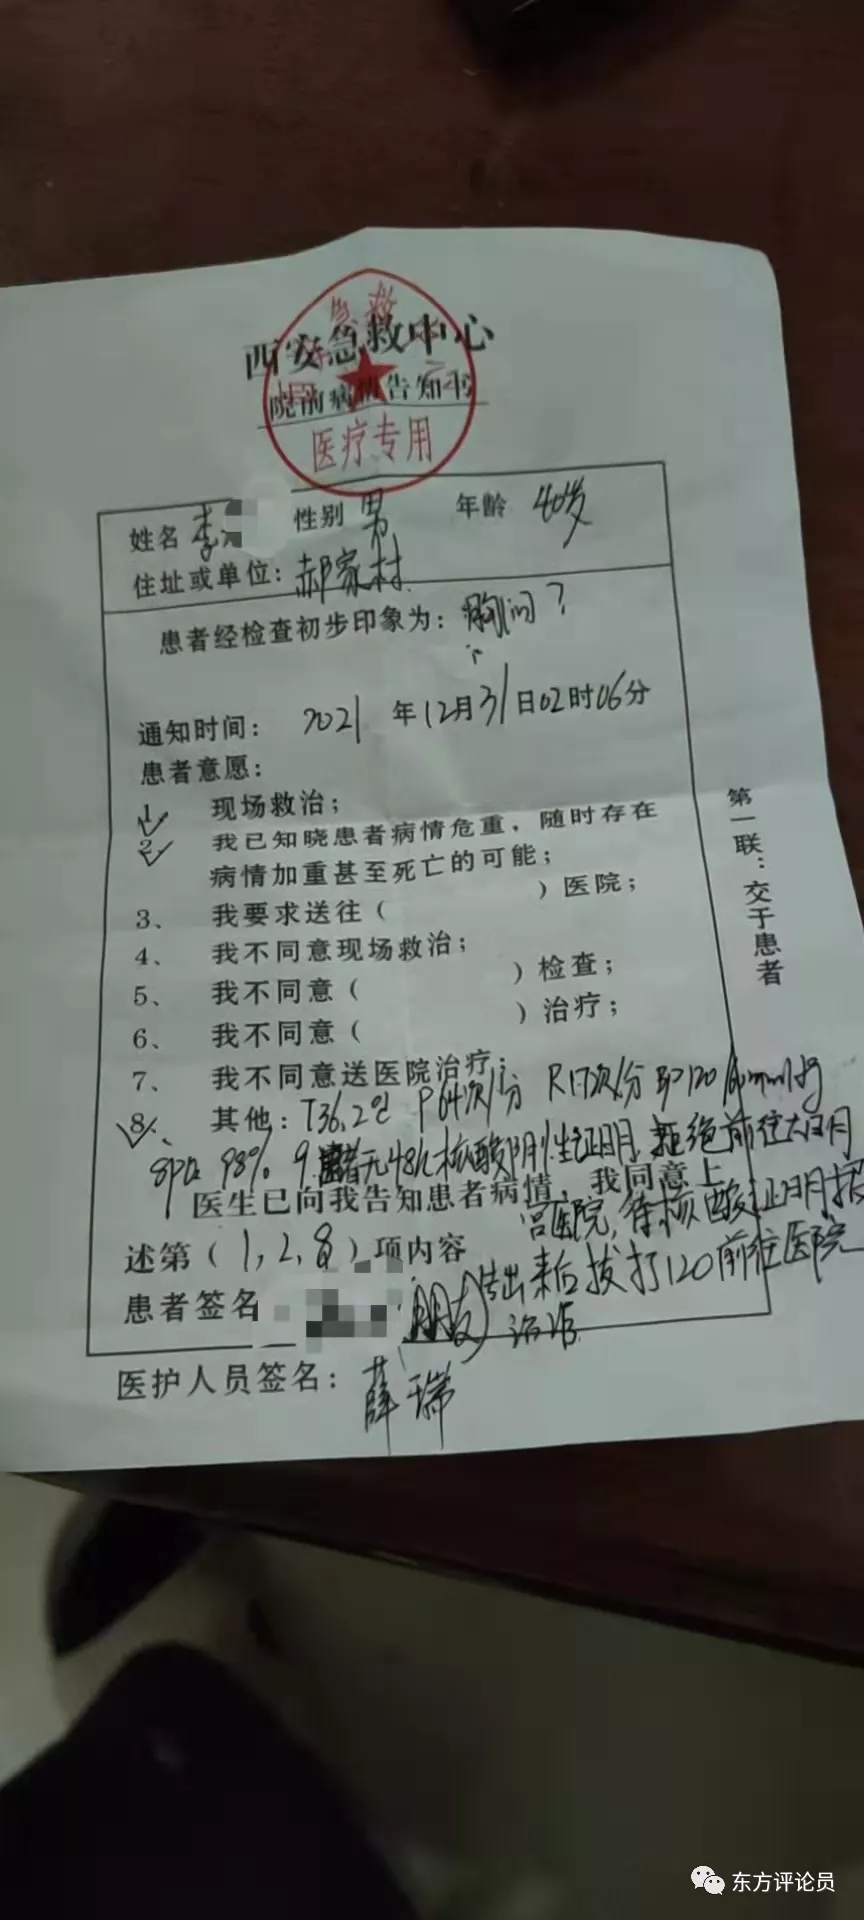 西安急救中心
院前病情告知书
急救
医疗专用
姓名 李 性别 男 年龄 40岁
住址或单位：郝家村
患者经检查初步印象为：胸闷？
通知时间： 2021 年 12月 31日 02时 06分
患者意愿：
1 现场救治；
2 我已知晓患者病情危重，随时存在
病情加重甚至死亡的可能；
3、 我要求送往（ ）医院；
4、 我不同意现场救治；
5、 我不同意（ ）检查；
6、 我不同意（ ）治疗；
7、 我不同意送医院治疗；
8、 其他：T36.2℃ P64次/分 R17次/分 BP120/ mmHg
SPO2 98% 9.患者无48h核酸阴性证明，拒绝前往大明
宫医院，待核酸证明报
告出来后拨打120前往医院
治疗
医生已向我告知患者病情，我同意上
述第（1，2，8）项内容
患者签名 （朋友）
医护人员签名： 薛瑞
第一联：交于患者
东方评论员